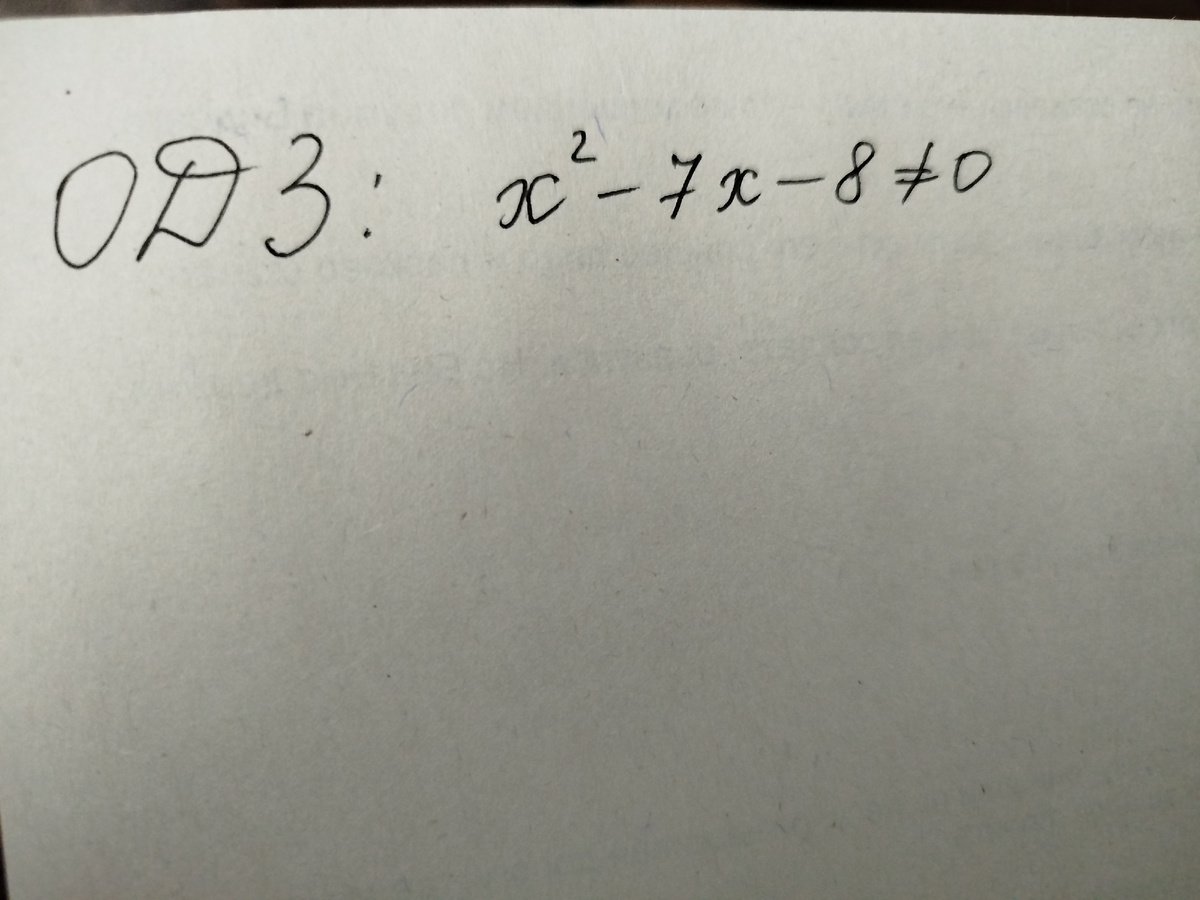 ОДЗ: x² - 7x - 8 ≠ 0